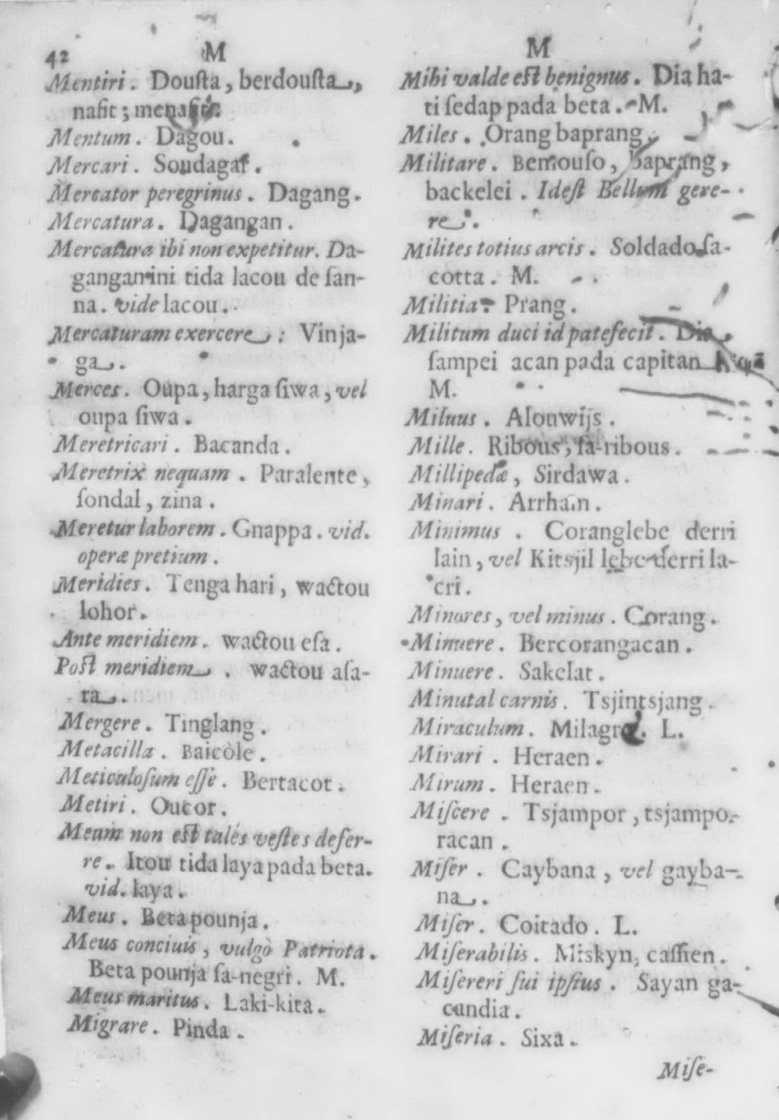 42 M
Mentiri. Dousta, berdousta,
nasit; menasit.
Mentum. Dagou.
Mercari. Soudagar.
Mercator peregrinus. Dagang.
Mercatura. Dagangan.
Mercatura ibi non expetitur. Da-
gangan ini tida lacou de san-
na. vide lacou.
Mercaturam exercere: Vinja-
ga.
Merces. Oupa, harga siwa, vel
oupa siwa.
Meretricari. Bacanda.
Meretrix nequam. Paralente,
sondal, zina.
Meretur laborem. Gnappa. vid.
operæ pretium.
Meridies. Tenga hari, wactou
lohor.
Ante meridiem. wactou esa.
Post meridiem. wactou asa-
ra.
Mergere. Tinglang.
Metacilla. Baicòle.
Meticulosum esse. Bertacot.
Metiri. Outor.
Meum non est tales vestes defer-
re. Itou tida laya pada beta.
vid. laya.
Meus. Beta pounja.
Meus conciuis, vulgò Patriota.
Beta pounja sa-negri. M.
Meus maritus. Laki-kita.
Migrare. Pinda.
M
Mihi valde est benignus. Dia ha-
ti sedap pada beta. M.
Miles. Orang baprang.
Militare. Bemouso, baprang,
backelei. Idest Bellum gere-
re.
Milites totius arcis. Soldado sa-
cotta. M.
Militia. Prang.
Militum duci id patefecit. Dia
sampei acan pada capitan
M.
Miluus. Alouwijs.
Mille. Ribous, sa-ribous.
Millipedæ, Sirdawa.
Minari. Arrhain.
Minimus. Coranglebe derri
lain, vel Kitsjil lebe derri la-
eri.
Minores, vel minus. Corang.
Minuere. Bercorangacan.
Minuere. Sakelat.
Minutal carnis. Tsjintsjang.
Miraculum. Milagre. L.
Mirari. Heraen.
Mirum. Heraen.
Miscere. Tsjampor, tsjampo-
racan.
Miser. Caybana, vel gayba-
na.
Miser. Coitado. L.
Miserabilis. Miskyn, cassien.
Misereri sui ipsius. Sayan ga-
candia.
Miseria. Sixa.
Mise-